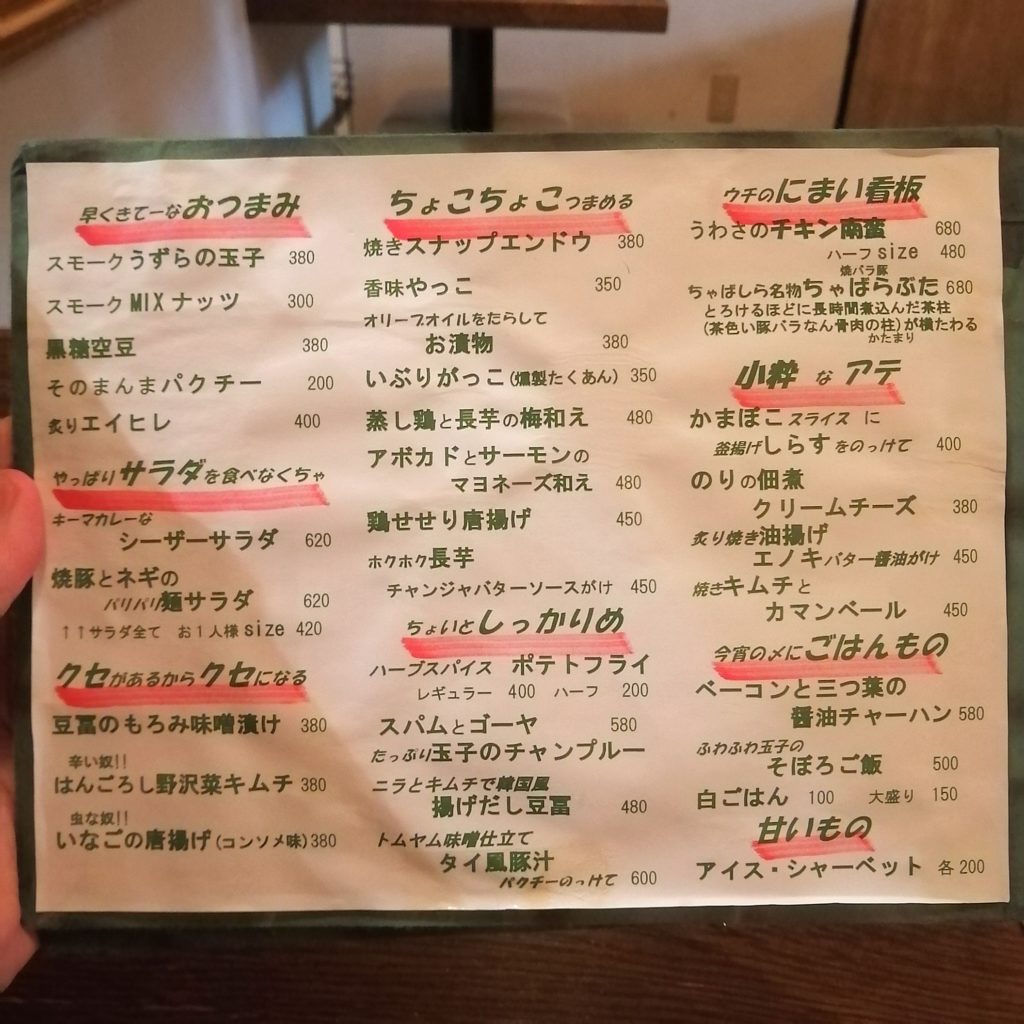 早くきてーなおつまみ
スモークうずらの玉子 380
スモークMIXナッツ 300
黒糖空豆 380
そのまんまパクチー 200
炙りエイヒレ 400
やっぱりサラダを食べなくちゃ
キーマカレーな
シーザーサラダ 620
焼豚とネギの
パリパリ麺サラダ 620
↑↑サラダ全て お1人様size 420
クセがあるからクセになる
豆冨のもろみ味噌漬け 380
辛い奴!!
はんごろし野沢菜キムチ 380
虫な奴!!
いなごの唐揚げ(コンソメ味) 380
ちょこちょこつまめる
焼きスナップエンドウ 380
香味やっこ 350
オリーブオイルをたらして
お漬物 380
いぶりがっこ(燻製たくあん) 350
蒸し鶏と長芋の梅和え 480
アボカドとサーモンの
マヨネーズ和え 480
鶏せせり唐揚げ 450
ホクホク長芋
チャンジャバターソースがけ 450
ちょいとしっかりめ
ハーブスパイス ポテトフライ
レギュラー 400 ハーフ 200
スパムとゴーヤ 580
たっぷり玉子のチャンプルー
ニラとキムチで韓国風
揚げだし豆冨 480
トムヤム味噌仕立て
タイ風豚汁
パクチーのっけて 600
ウチのにまい看板
うわさのチキン南蛮 680
ハーフsize 480
焼バラ豚
ちゃばしら名物ちゃばらぶた 680
とろけるほどに長時間煮込んだ茶柱
(茶色い豚バラなん骨肉の柱)が横たわる
かたまり
小粋なアテ
かまぼこスライスに
釜揚げしらすをのっけて 400
のりの佃煮
クリームチーズ 380
炙り焼き油揚げ
エノキバター醤油がけ 450
焼きキムチと
カマンベール 450
今宵の〆にごはんもの
ベーコンと三つ葉の
醤油チャーハン 580
ふわふわ玉子の
そぼろご飯 500
白ごはん 100 大盛り 150
甘いもの
アイス・シャーベット 各200